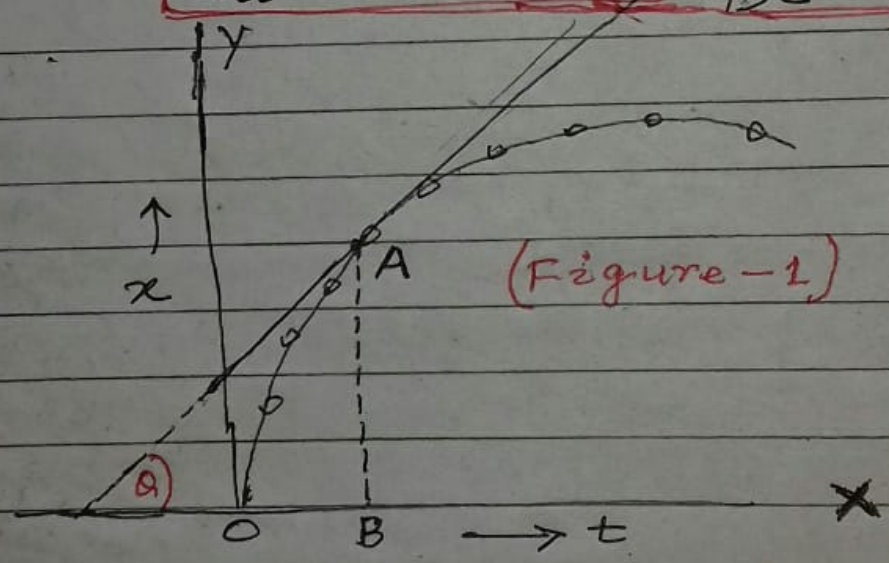 y
↑
x
A
(Figure-1)
Q
O B → t X